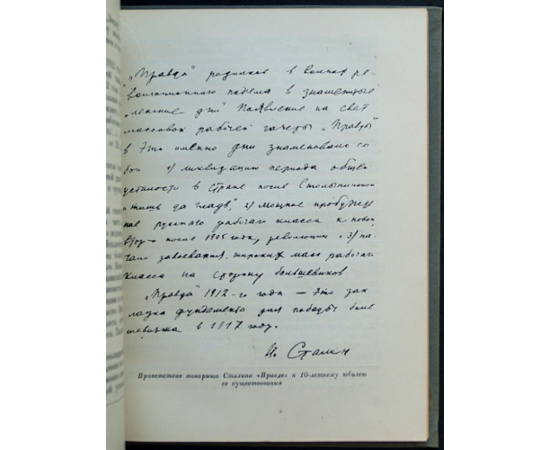 „Правда" родилась в волнах ре-
волюционного подъема в знаменитые
„ленские дни". Появление на свет
массовой рабочей газеты „Правды"
в эти именно дни знаменовало со-
бой 1) ликвидацию периода общей
усталости в стране после Столыпинской
„тишь да гладь", 2) мощное пробужде-
ние русского рабочего класса к новой
после 1905 года, революции 3) на-
чало завоевания широких масс рабочего
класса на сторону большевиков.
„Правда" 1912-го года — это зак-
ладка фундамента для победы боль-
шевизма в 1917 году.
И. Сталин
Приветствие товарища Сталина «Правде» к 10-летнему юбилею
ее существования